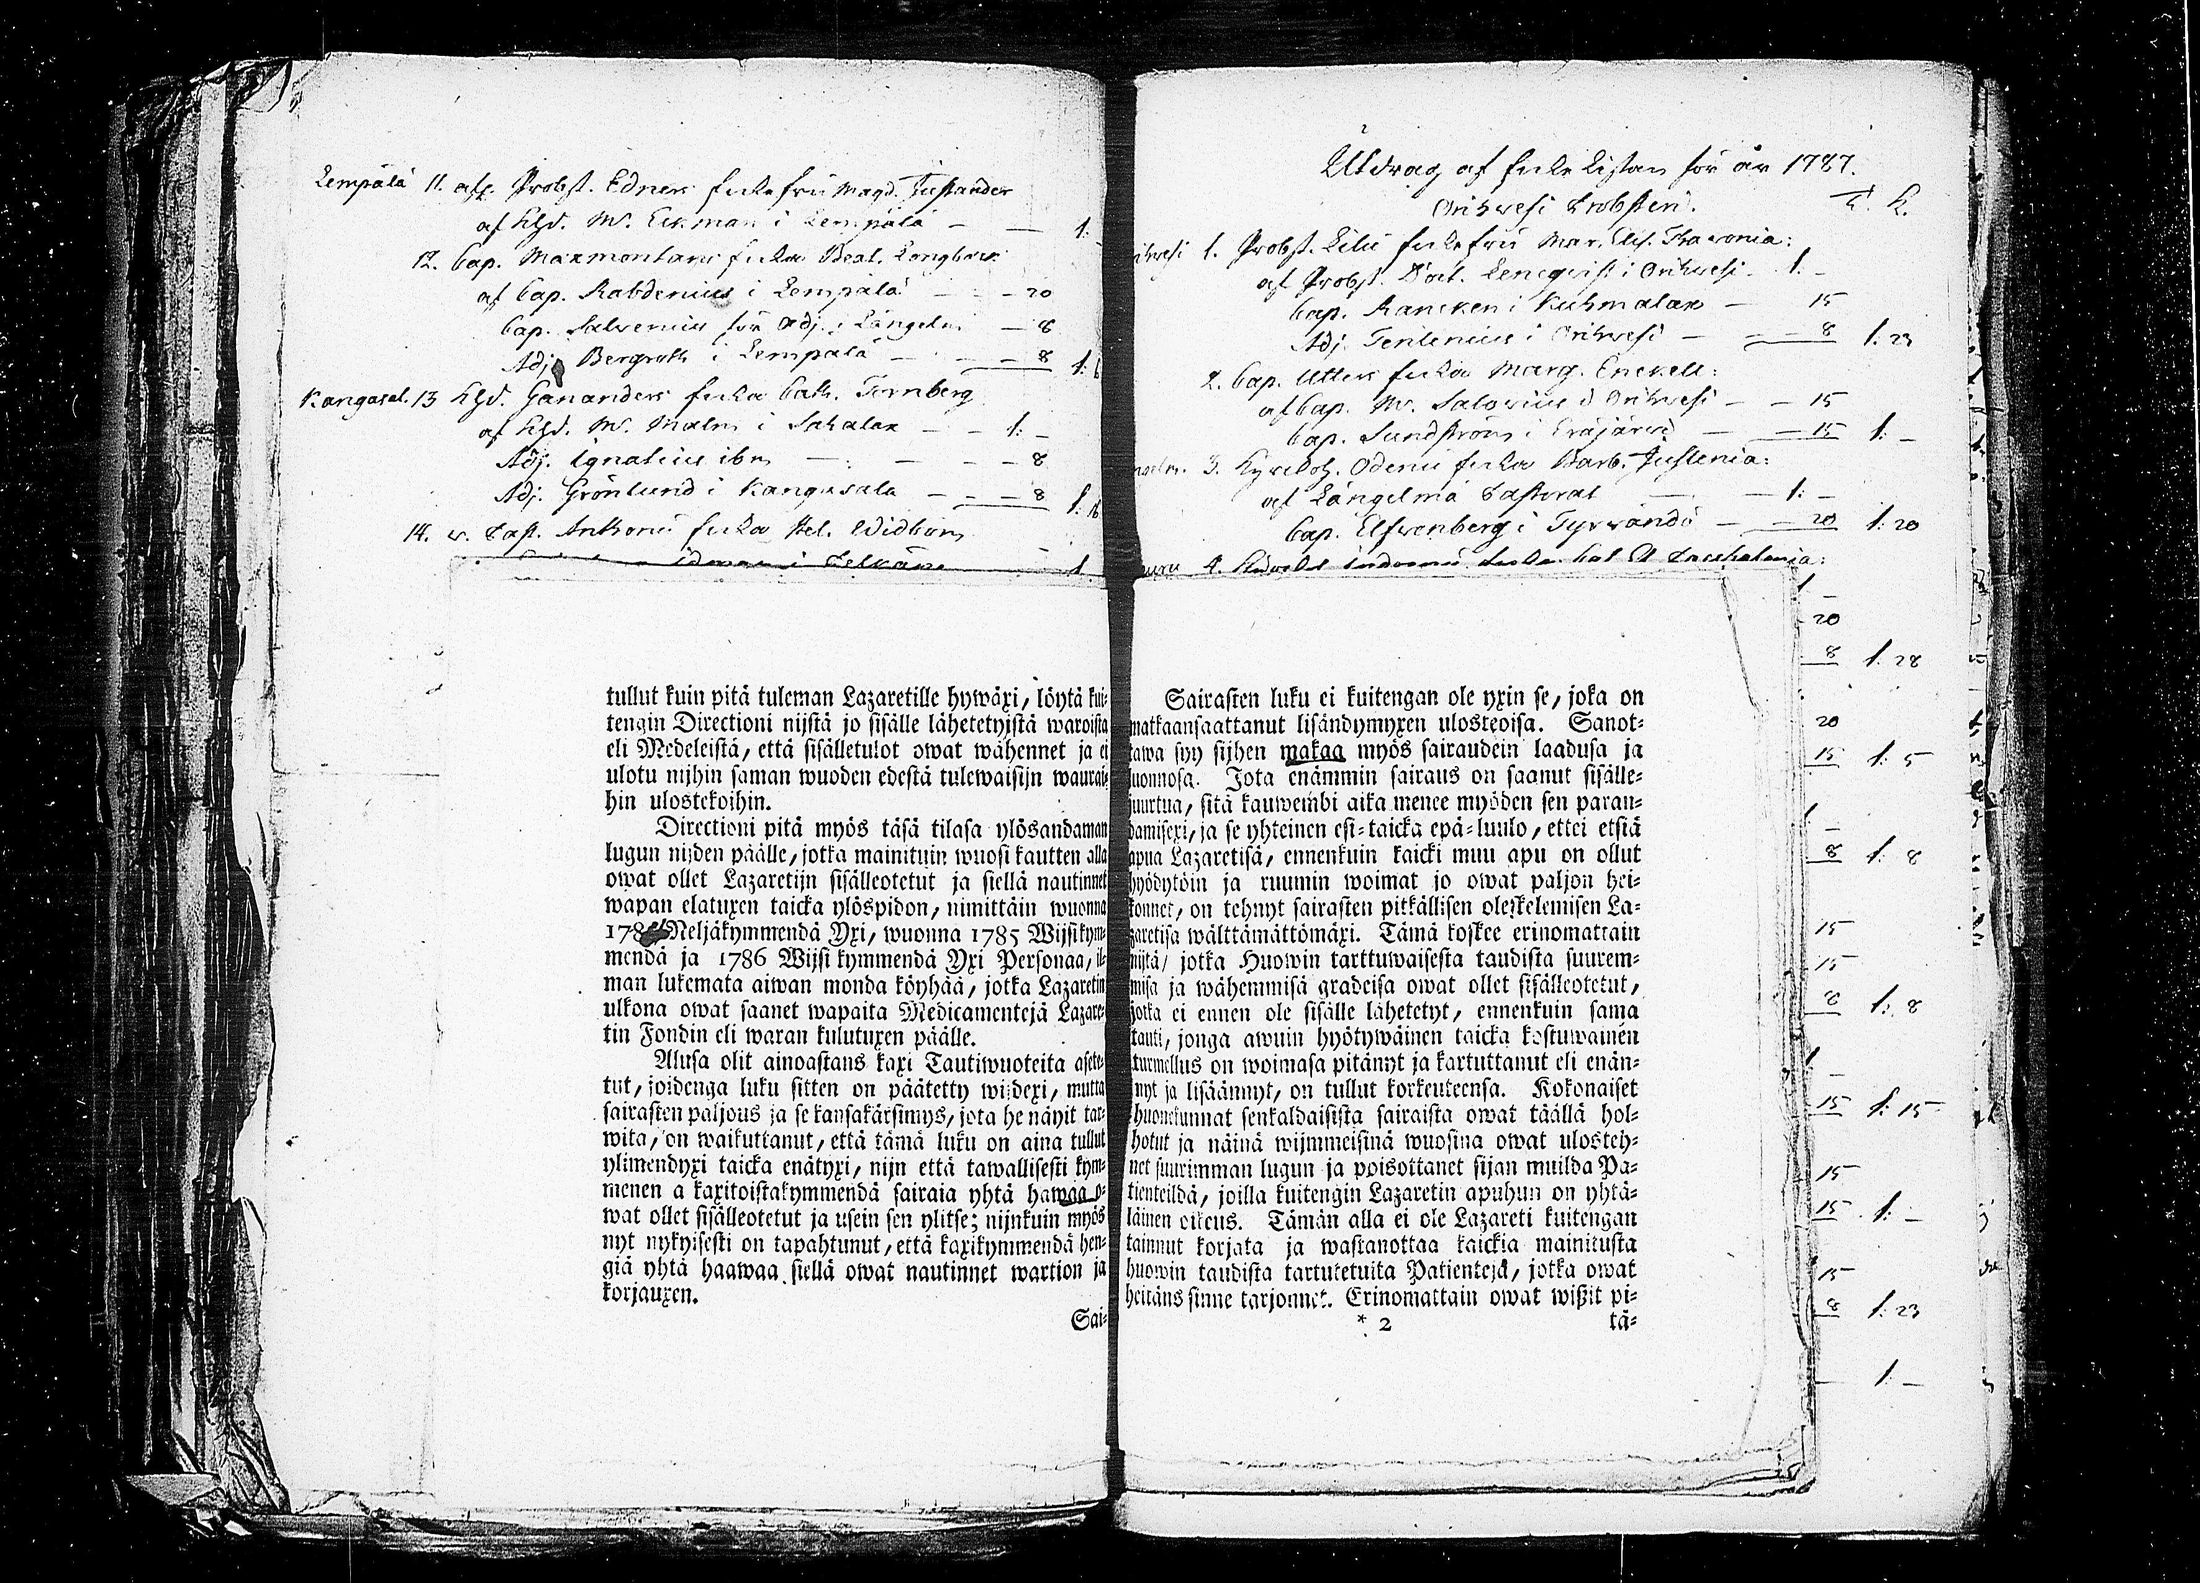 Lempälä 11. afl. Probst. Edners enkefru Magd. Justander
af Khd. M. Ekman i Lempälä — — 1:
12. Cap. Maxmontans enka Beat. Longberg
af Cap. Rabdenius i Lempälä — — 20
Cap. Salvenius för Adj. i Längelm — 8
Adj. Bergroth i Lempälä — — 8 1:
Kangasal. 13 Khd. Gananders enka Cath. Tornberg
af Khd. M. Malm i Sahalax — — 1: —
Adj. Ignatius ibm — — — 8
Adj. Grönlund i Kangasala — — — 8 1: 16
14. v. Past. Anthonii enka Hel. Widbom
tullut kuin pitä tuleman Lazaretille hywäxi, löytä kui-
tengin Directioni nijstä jo sisälle lähetetyistä waroista
eli Medeleistä, että sisälletulot owat wähennet ja ei
ulotu nijhin saman wuoden edestä tulewaisijn waurai-
hin ulostekoihin.
Directioni pitä myös täsä tilasa ylösandaman
lugun nijden päälle, jotka mainituin wuosi kautten alla
owat ollet Lazaretijn sisälleotetut ja siellä nautinnet
wapan elatuxen taicka ylöspidon, nimittäin wuonna
178 Neljäkymmendä Yxi, wuonna 1785 Wijsikym-
mendä ja 1786 Wijsi kymmendä Yxi Personaa, il-
man lukemata aiwan monda köyhää, jotka Lazaretin
ulkona owat saanet wapaita Medicamentejä Lazare-
tin Fondin eli waran kulutuxen päälle.
Alusa olit ainoastans kaxi Tautiwuoteita asete-
tut, joidenga luku sitten on päätetty wijdexi, mutta
sairasten paljous ja se kansakärsimys, jota he näyit tar-
wita, on waikuttanut, että tämä luku on aina tullut
ylimendyxi taicka enätyxi, nijn että tawallisesti kym-
menen a kaxitoistakymmendä sairaia yhtä hawaa o-
wat ollet sisälleotetut ja usein sen ylitse; nijnkuin myös
nyt nykyisesti on tapahtunut, että kaxikymmendä hen-
giä yhtä haawaa siellä owat nautinnet wartion ja
korjauxen.
Sai-
Utdrag af enke Listan för år 1787.
Orihvesi Probsteri. T. K.
ihvesi 1. Probst. Lilii enkefru Mar. Elis. Thawonia:
af Probst. Doct. Lencqvist i Orihvesi — 1. —
Cap. Rancken i Kuhmalax — 15
Adj. Tenlenius i Orihvesi — — 8 1: 23
2. Cap. Utters enka Marg. Enckell:
af Cap. M. Salovius i Orihvesi — — 15
Cap. Sundström i Eräjärvi — — 15 1: —
3. Kyrckoh. Odenii enka Barb. Justenia:
af Längelmä Pastorat — — 1: —
Cap. Elfvenberg i Tyrvändö — — 20 1: 20
1 —
20
8 1: 28
20
15 1: 5
1 —
8 1: 8
15
15
8 1: 8
1 —
15 1: 15
15
15 1: —
15
8 1: 23
— 1: —
Sairasten luku ei kuitengan ole yxin se, joka on
matkaansaattanut lisändymyxen ulosteoisa. Sanot-
tawa syy sijhen makaa myös sairaudein laadusa ja
luonnosa. Jota enämmin sairaus on saanut sisälle-
juurtua, sitä kauwembi aika menee myöden sen paran-
damisexi, ja se yhteinen esi-taicka epä-luulo, ettei etsiä
apua Lazaretisä, ennenkuin kaicki muu apu on ollut
hyödytöin ja ruumin woimat jo owat paljon hei-
konnet, on tehnyt sairasten pitkällisen oleskelemisen La-
zaretisa wälttämättömäxi. Tämä koskee erinomattain
nijtä, jotka Huowin tarttuwaisesta taudista suurem-
misa ja wähemmisä gradeisa owat ollet sisälleotetut,
jotka ei ennen ole sisälle lähetetyt, ennenkuin sama
tauti, jonga awuin hyötywäinen taicka kostuwainen
turmellus on woimasa pitänyt ja kartuttanut eli enän-
nyt ja lisäännyt, on tullut korkeuteensa. Kokonaiset
huonekunnat senkaldaisista sairaista owat täällä hol-
hotut ja näinä wijmmeisinä wuosina owat ulosteh-
net suurimman lugun ja poisottanet sijan muilda Pa-
tienteildä, joilla kuitengin Lazaretin apuhun on yhtä-
läinen oikeus. Tämän alla ei ole Lazareti kuitengan
tainnut korjata ja wastanottaa kaickia mainitusta
huowin taudista tartutetuita Patientejä, jotka owat
heitäns sinne tarjonnet. Erinomattain owat wißit pi-
* 2 tä-